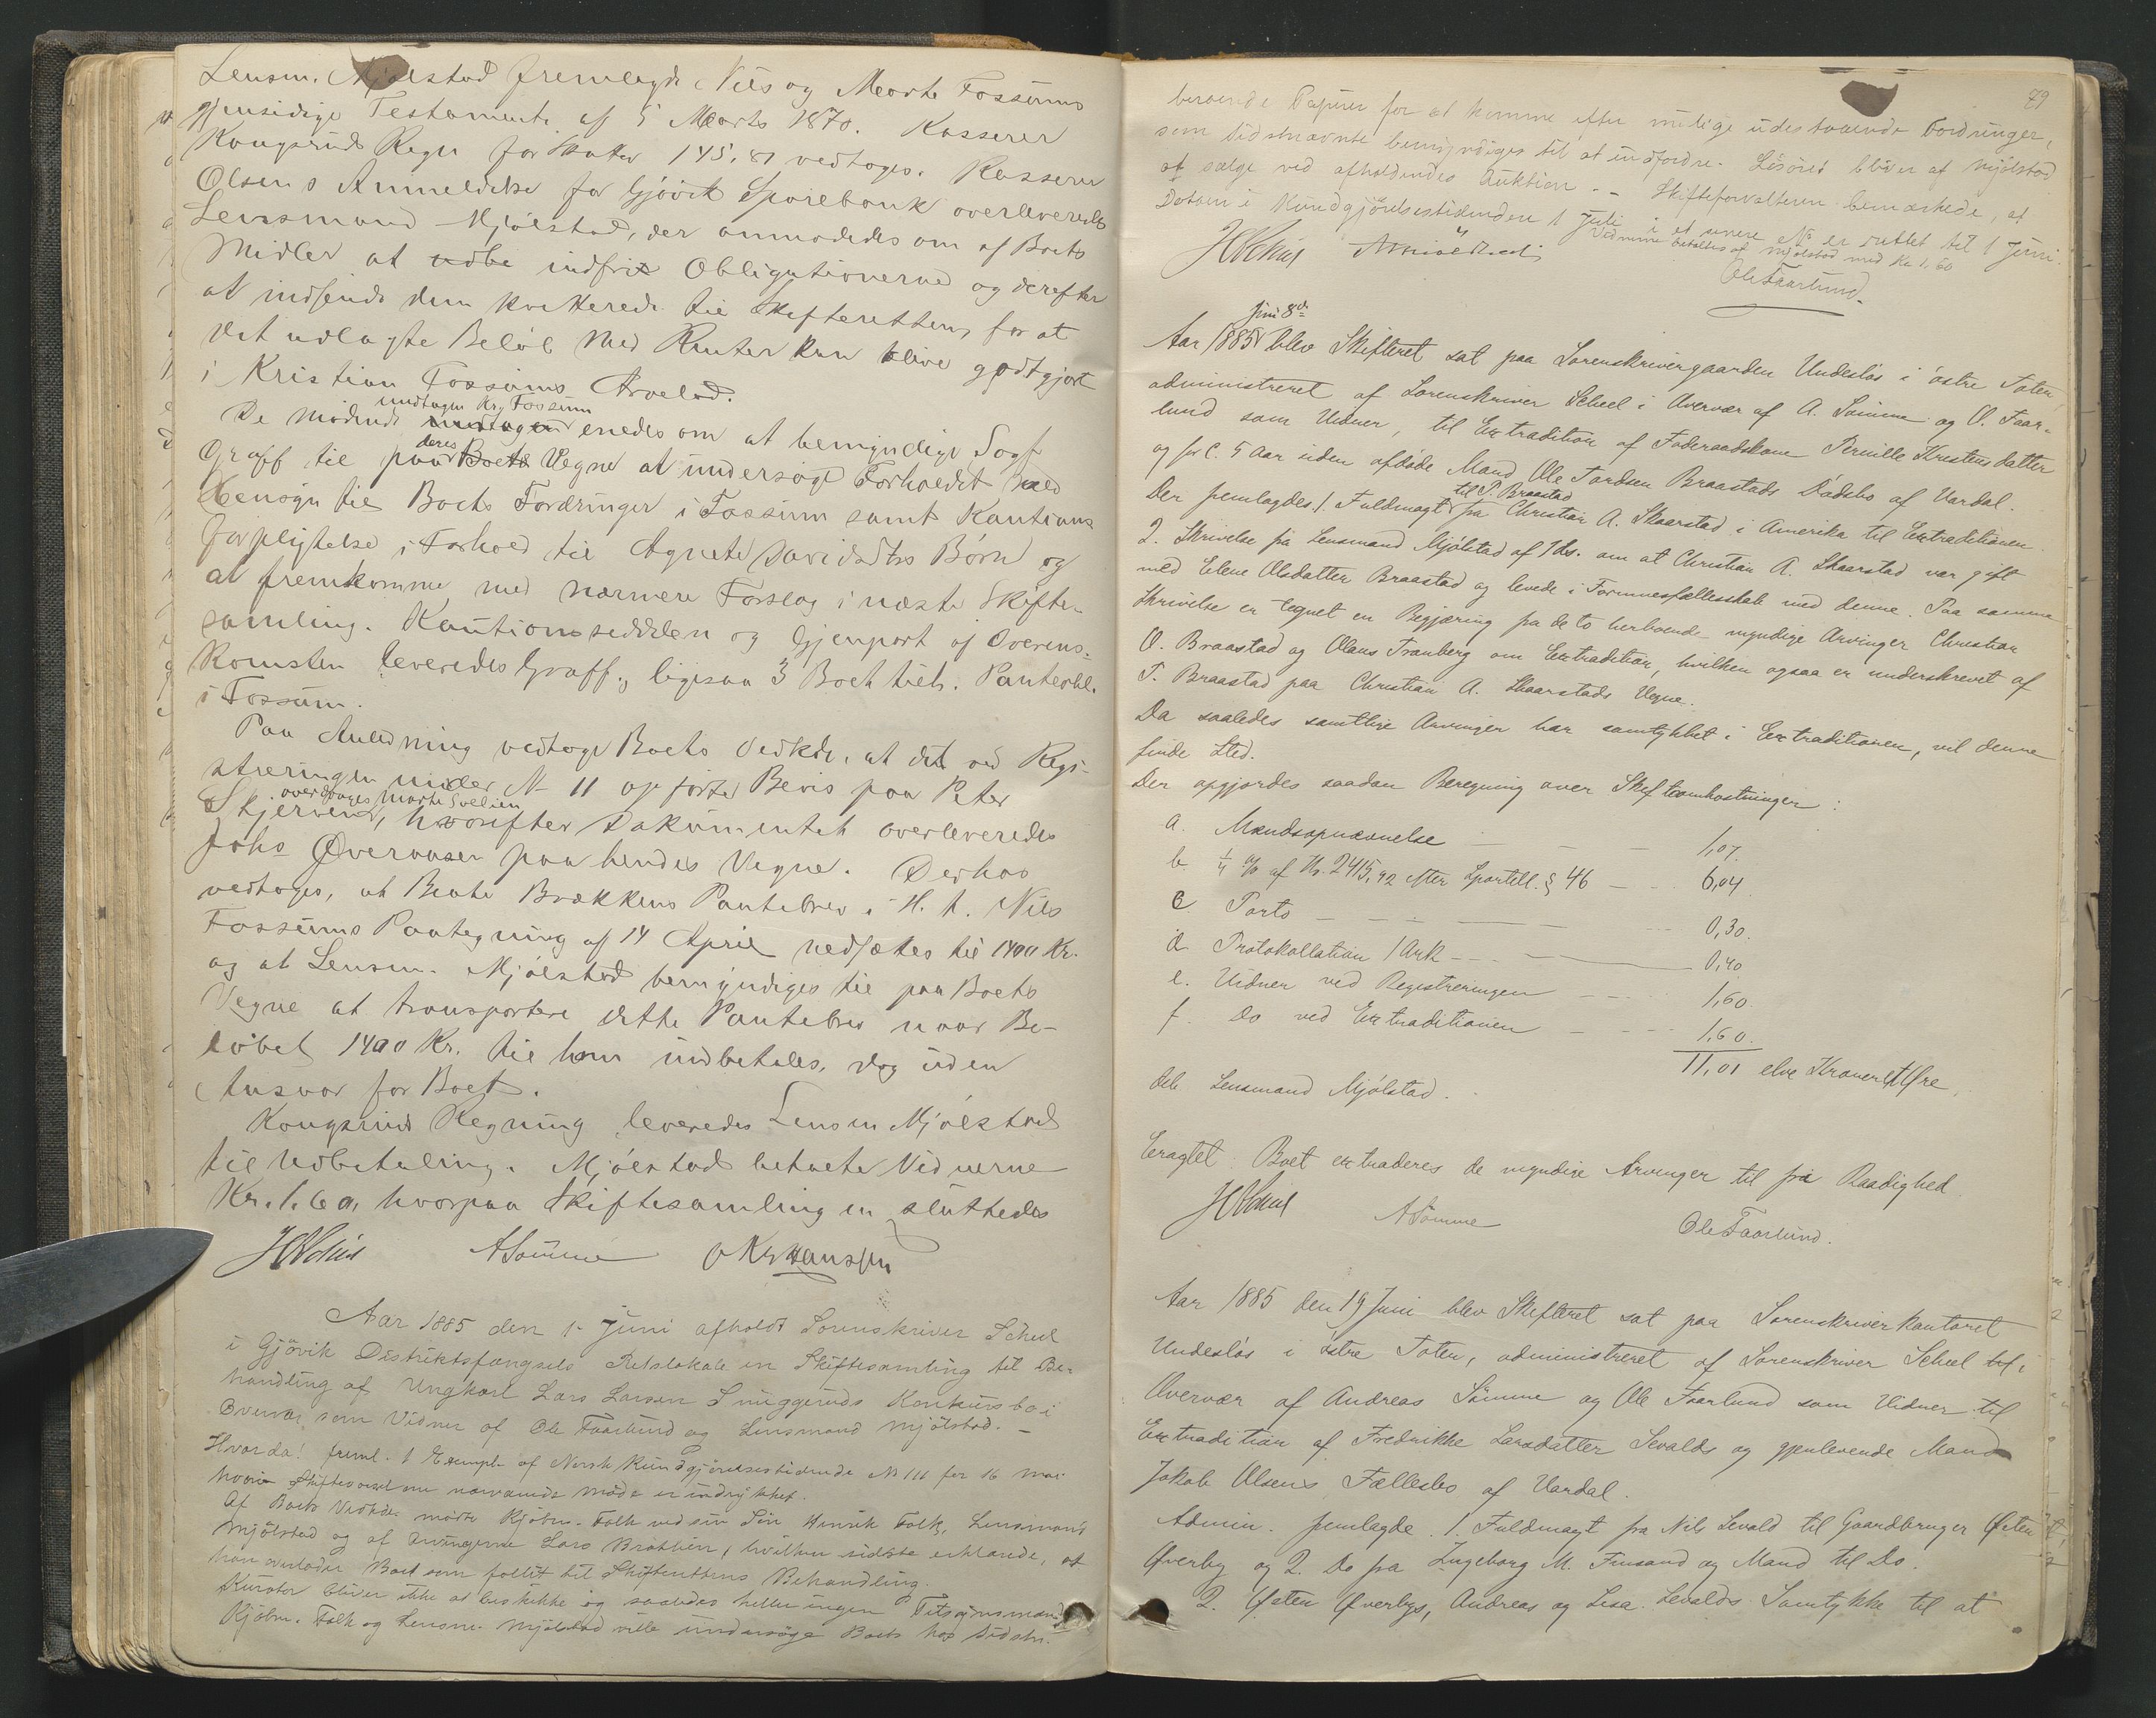 Lensm. Mjølstad fremlagde Nils og Marte Fossums
gjensidige Testamente af 5 Marts 1870. Kasserer
Kongsrud Regn for Skatter 145,81 vedtoges. Kasserer
Olsens Anmeldelse for Gjøvik Sparebank overleveredes
Lensmand Mjølstad, der anmodedes om af Boets
Midler at udbe indfrie Obligationerne og derefter
at indsende dem kvitterede til Skifteretten, for at
det udlagte Beløb med Renter kan blive godtgjort
i Kristian Fossums Arvelod.
undtagen Kr. Fossum
De mødende undtagen enedes om at bemyndige Sagf
deres
Graff til paa Boets Vegne at undersøge Forholdet med
Hensyn til Boets Fordringer i Fossum samt Kautions
forpligtelse i Forhold til Agnete Davidsdtrs Børn og
at fremkomme med nærmere Forslag i næste Skifte-
samling. Kautionsseddelen og Gjenpart af Overens-
komsten leveredes Graff, ligesaa 3 Boet tilh. Panteobl.
i Fossum.
Paa Anledning vedtoge Boets Vedkde. at det ved Regi-
streringen under N 11 opførte Bevis paa Peter
overdrages Marte Svelien
Skjerven, hvorefter Dokumentet overleveredes
Johs Øveraasen paa hendes Vegne. Derhos
vedtoges, at Beate Brækkens Pantebrev i H. t. Nils
Fossums Paategning af 14 April nedsættes til 1400 Kr.
og at Lensm. Mjølstad bemyndiges til paa Boets
Vegne at transportere dette Pantebrev naar Be-
løbet 1400 Kr. til ham indbetales, dog uden
Ansvar for Boet.
Kongsruds Regning leveredes Lensm Mjølstad
til Udbetaling. Mjølstad betalte Vidnerne
Kr. 1.60, hvorpaa Skiftesamlingen sluttedes
HScheel ASømme O KrHanssen
Aar 1885 den 1 Juni afholdt Sorenskriver Scheel
i Gjøvik Distriktsfængsels Retslokale en Skiftesamling til Be-
handling af Ungkarl Lars Larsen Snuggeruds Konkursbo i
Overvær som Vidner af Ole Faarlund og Lensmand Mjølstad. -
Hvorda: freml. 1 Exempl. af Norsk Kundgjørelsestidende N 111 for 16 Mai
hvori Skiftevarsel om nærværende Møde er indrykket.
Af Boets Vedkde. mødte Kjøbm. Falk ved sin Søn Henrik Falk, Lensmand
Mjølstad og af Arvingerne Lars Bratlien, hvilken sidste erklærede, at
han overlader Boet som fallit til Skifterettens Behandling.
Kurator bliver ikke at beskikke og saaledes heller ingen Tilsynsmand
Kjøbm. Falk og Lensm. Mjølstad ville undersøge Boets hos sidstn.
79
beroende Papirer for at komme efter mulige udestaaende Fordringer,
som sidstnævnte bemyndiges til at indfordre. Løsøret bliver af Mjølstad
at sælge ved afholdendes Auktion. - Skifteforvalteren bemærkede, at
Datoen i Kundgjørelsestidenden 1 Juli i et senere No er rettet til 1 Juni.
Vidnerne betaltes af Mjølstad med Kr 1,60
HScheel Ole Faarlund.
Juni 8de
Aar 1885 blev Skifteret sat paa Sorenskrivergaarden Undeslös i östre Toten,
administreret af Sorenskriver Scheel i Overvær af A. Sømme og O. Faar-
lund som Vidner, til Extradition af Føderaadskone Pernille Kristensdatter
og for c. 5 Aar siden afdøde Mand Ole Tordsen Braastads Dødsbo af Vardal.
til P. Braastad
Der fremlagdes 1. Fuldmagt fra Christian A. Skaarstad i Amerika til Extraditionen.
2. Skrivelse fra Lensmand Mjölstad af 7 ds. om at Christian A. Skaarstad var gift
med Elene Olsdatter Braastad og levede i Formuesfællesskab med denne. Paa samme
Skrivelse er tegnet en Begjæring fra de to herboende myndige Arvinger Christian
O. Braastad og Olaus Tranberg om Extradition, hvilken ogsaa er underskrevet af
P. Braastad paa Christian A. Skaarstads Vegne.
Da saaledes samtlige Arvinger har samtykket i Extraditionen, vil denne
finde Sted.
Der opgjordes saadan Beregning over Skifteomkostninger:
a. Mændsopnævnelse 1,07.
b. 1/4 % af Kr. 2415,92 efter Sportell. § 46 6,04.
c Porto 0,30.
d. Protokollation 1 Ark 0,40.
e. Vidner ved Registreringen 1,60.
f. Do ved Extraditionen 1,60.
11,01 elve Kroner et Øre.
Lensmand Mjölstad.
Eragtet: Boet extraderes de myndige Arvinger til fri Raadighed
HScheel ASømme Ole Faarlund.
Aar 1885 den 19 Juni blev Skifteret sat paa Sorenskriverkontoret
Undeslös i östre Toten, administreret af Sorenskriver Scheel i
Overvær af Andreas Sömme og Ole Faarlund som Vidner til
Extradition af Fredrikke Larsdatter Sevalds og gjenlevende Mand
Jakob Olsens Fællesbo af Vardal.
Admin. fremlagde 1. Fuldmagt fra Nils Sevald til Gaardbruger Østen
Øverby og 2. Do fra Ingeborg M. Finsand og Mand til Do.
2. Østen Øverbys, Andreas og Lisa Sevalds Samtykke til at